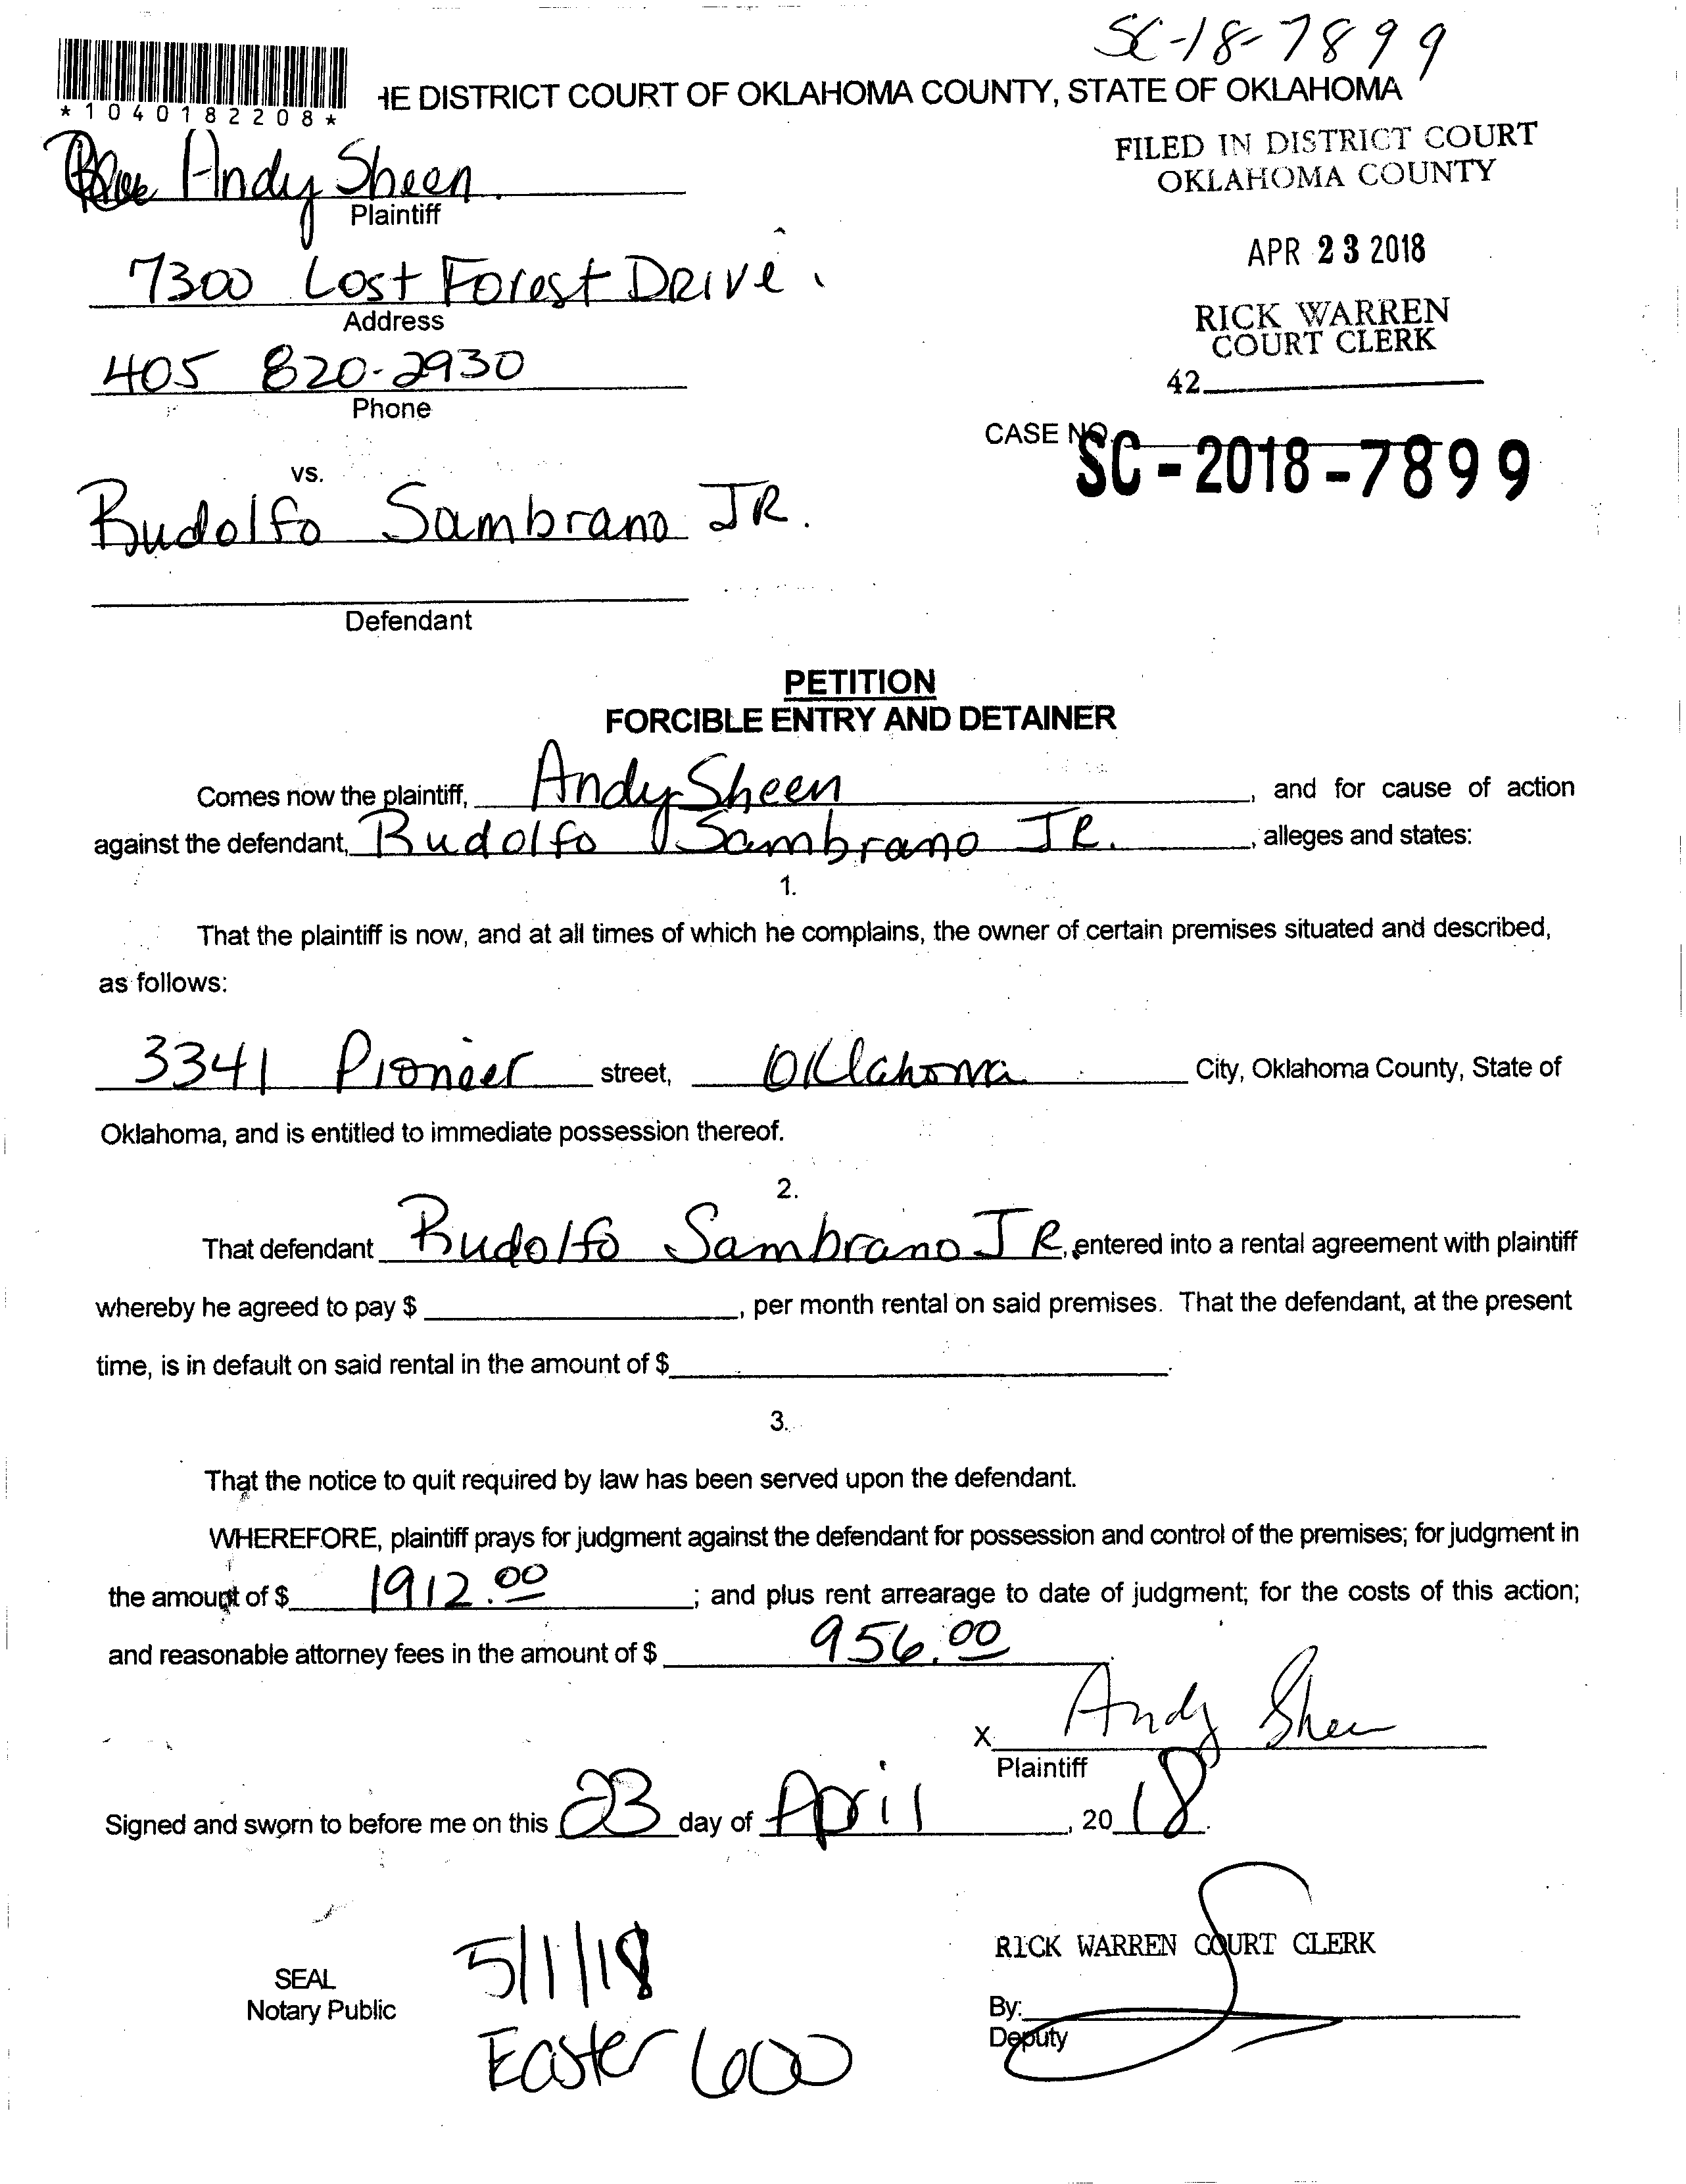 SC-18-7899
*1040182208*
HE DISTRICT COURT OF OKLAHOMA COUNTY, STATE OF OKLAHOMA
FILED IN DISTRICT COURT
OKLAHOMA COUNTY
Andy Sheen
Plaintiff
APR 23 2018
7300 Lost Forest Drive.
Address
RICK WARREN
COURT CLERK
405 820-2930
Phone
42
CASE NO.
SC-2018-7899
vs.
Rudolfo Sambrano JR.
Defendant
PETITION
FORCIBLE ENTRY AND DETAINER
Comes now the plaintiff, Andy Sheen, and for cause of action
against the defendant, Rudolfo Sambrano JR., alleges and states:
1.
That the plaintiff is now, and at all times of which he complains, the owner of certain premises situated and described,
as follows:
3341 Pioneer street, Oklahoma City, Oklahoma County, State of
Oklahoma, and is entitled to immediate possession thereof.
2.
That defendant Rudolfo Sambrano JR, entered into a rental agreement with plaintiff
whereby he agreed to pay $, per month rental on said premises. That the defendant, at the present
time, is in default on said rental in the amount of $.
3.
That the notice to quit required by law has been served upon the defendant.
WHEREFORE, plaintiff prays for judgment against the defendant for possession and control of the premises; for judgment in
the amount of $ 1912.00; and plus rent arrearage to date of judgment; for the costs of this action;
and reasonable attorney fees in the amount of $ 956.00
X Andy Sheen
Plaintiff
Signed and sworn to before me on this 23 day of April, 2018.
RICK WARREN COURT CLERK
5/1/18
SEAL
Notary Public
By:
Deputy
Easter 600